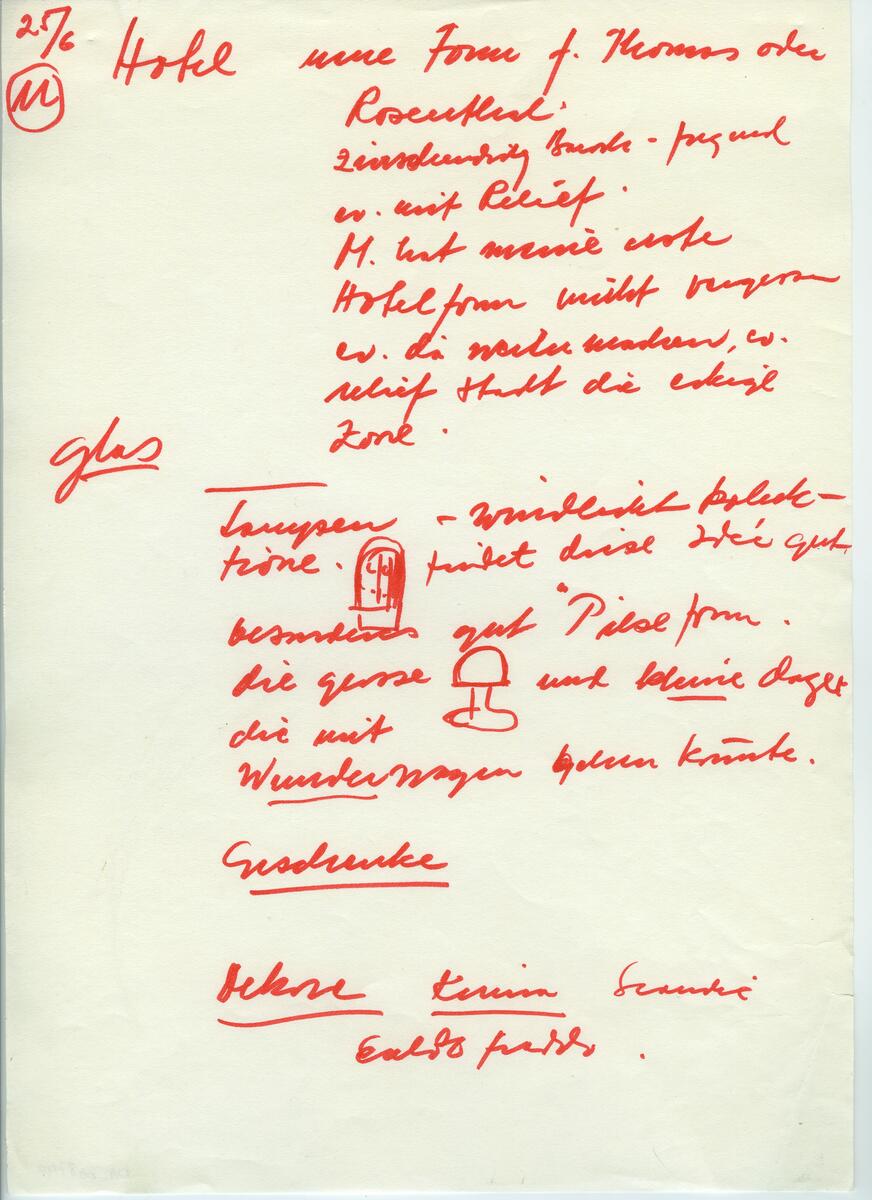 25/6
M
Hotel neue Form f. Thomas oder
Rosenthal.
Barock - Jugend
ev. mit Relief.
M. hat meine erste
Hotelform nicht vergessen
ev. da weitermachen, ev.
relief statt die eckige
Zone.
Glas
Lampen - Windlicht Kolek-
tione. findet diese Idée gut,
besonders gut "Pilseform.
die grosse und kleine
die mit
Wunderwagen gehen könnte.
Geschenke
Dekore Scandic
Caldo freddo.